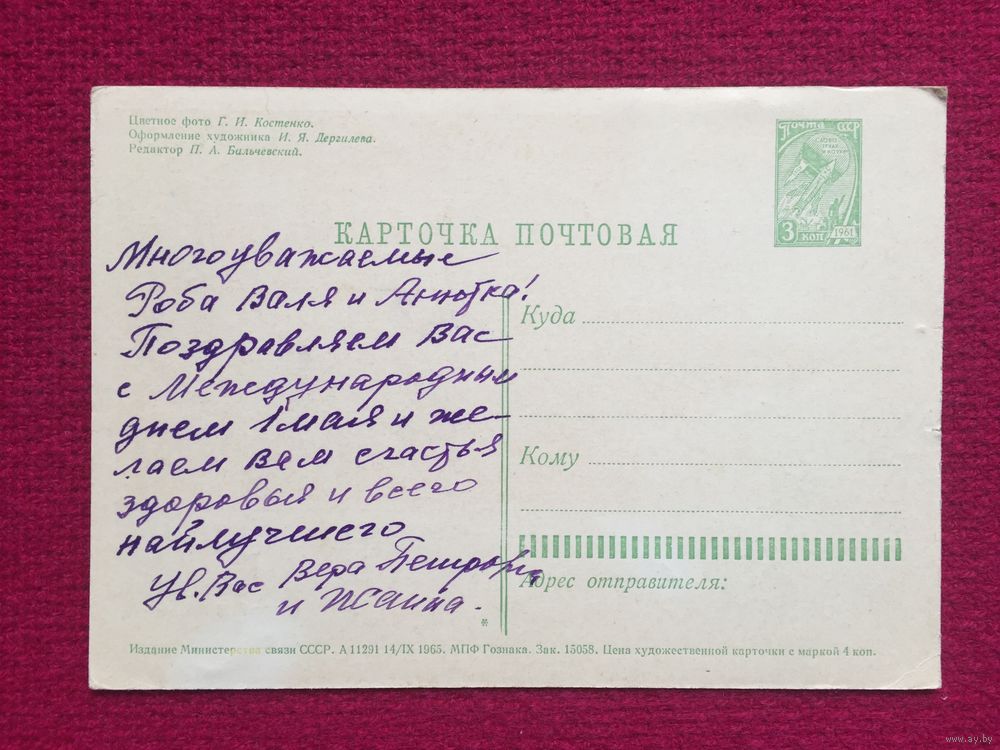 Цветное фото Г. И. Костенко.
Оформление художника И. Я. Дергилева.
Редактор П. А. Бальчевский.
Почта СССР
3 коп 1961
КАРТОЧКА ПОЧТОВАЯ
Многоуважаемые
Роба Валя и Анютка!
Поздравляем Вас
с Международным
днем 1 мая и же-
лаем Вам счастья
здоровья и всего
найлучшего
Ув. Вас Вера Петровна
и Жанна.
Куда
Кому
Адрес отправителя:
*
Издание Министерства связи СССР. А 11291 14/IX 1965. МПФ Гознака. Зак. 15058. Цена художественной карточки с маркой 4 коп.
www.ay.by